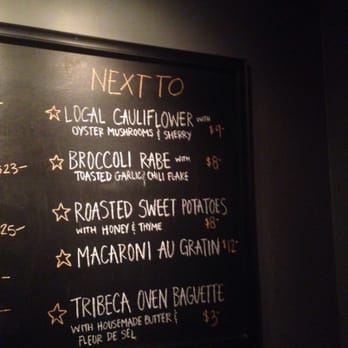 NEXT TO
☆ LOCAL CAULIFLOWER WITH
OYSTER MUSHROOMS & SHERRY $9-
☆ BROCCOLI RABE WITH
TOASTED GARLIC & CHILI FLAKE $8-
☆ ROASTED SWEET POTATOES
WITH HONEY & THYME $8-
☆ MACARONI AU GRATIN $12-
☆ TRIBECA OVEN BAGUETTE
WITH HOUSEMADE BUTTER & $3-
FLEUR DE SEL
$23-
25-